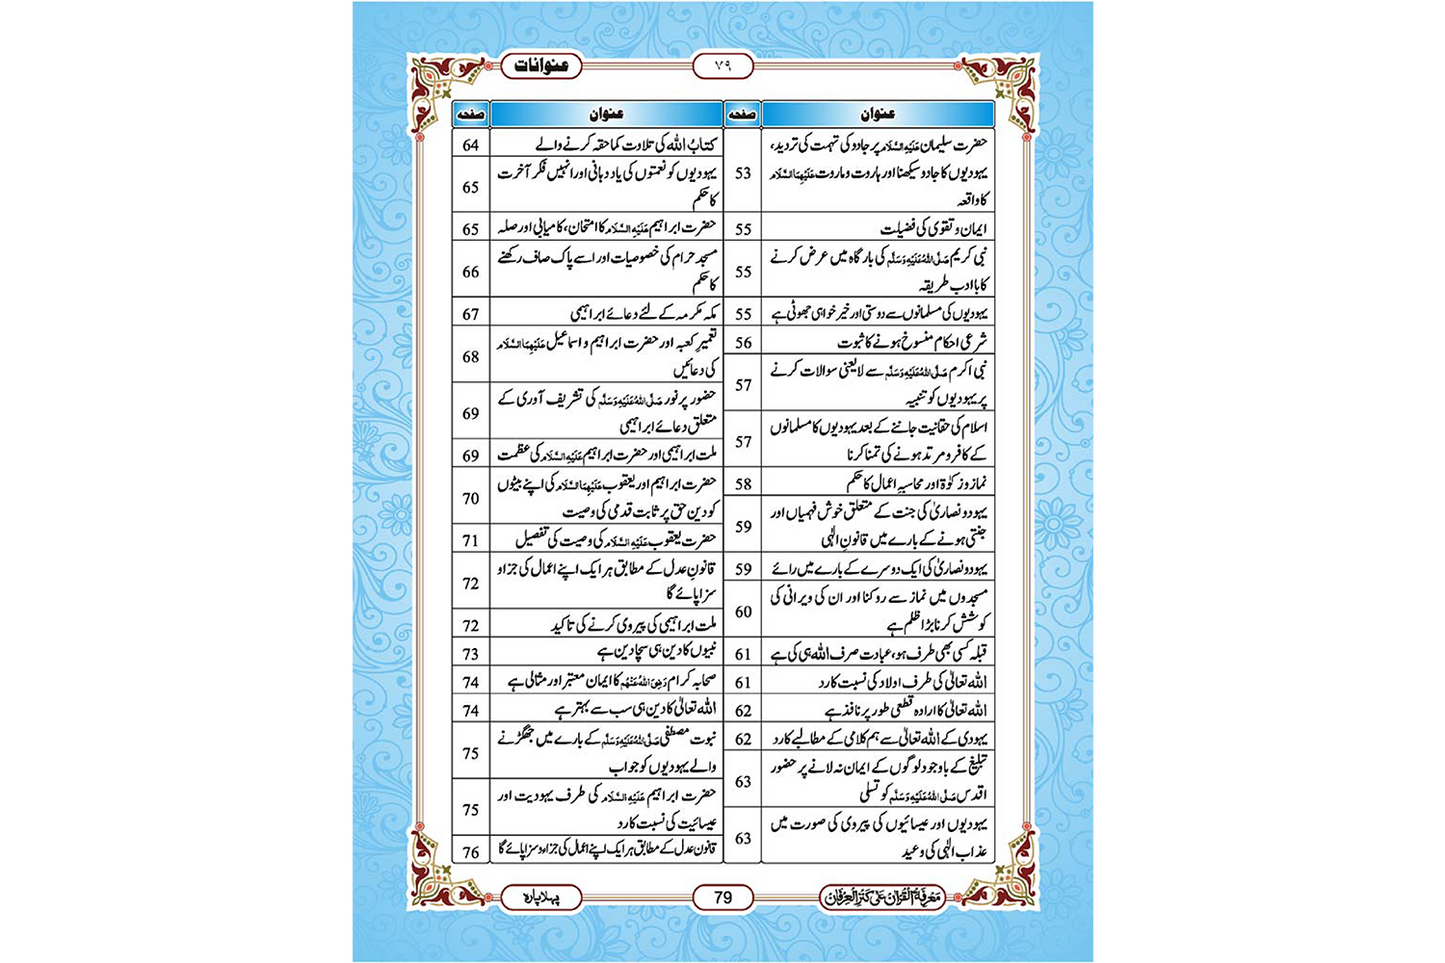 عنوانات
۷۹
عنوان صفحہ
حضرت سلیمان عَلَیْہِ السَّلَام پر جادو کی تہمت کی تردید،
یہودیوں کا جادو سیکھنا اور ہاروت و ماروت عَلَیْہِمَا السَّلَام
کا واقعہ
53
ایمان و تقوی کی فضیلت 55
نبی کریم صَلَّی اللہُ عَلَیْہِ وَسَلَّم کی بارگاہ میں عرض کرنے
کا باادب طریقہ
55
یہودیوں کی مسلمانوں سے دوستی اور خیر خواہی جھوٹی ہے 55
شرعی احکام منسوخ ہونے کا ثبوت 56
نبی اکرم صَلَّی اللہُ عَلَیْہِ وَسَلَّم سے لایعنی سوالات کرنے
پر یہودیوں کو تنبیہ
57
اسلام کی حقانیت جاننے کے بعد یہودیوں کا مسلمانوں
کے کافر و مرتد ہونے کی تمنا کرنا
57
نماز و زکوٰۃ اور محاسبہِ اعمال کا حکم 58
یہود و نصاریٰ کی جنت کے متعلق خوش فہمیاں اور
جنتی ہونے کے بارے میں قانونِ الٰہی
59
یہود و نصاریٰ کی ایک دوسرے کے بارے میں رائے 59
مسجدوں میں نماز سے روکنا اور ان کی ویرانی کی
کوشش کرنا بڑا ظلم ہے
60
قبلہ کسی بھی طرف ہو، عبادت صرف اللہ ہی کی ہے 61
اللہ تعالیٰ کی طرف اولاد کی نسبت کا رد 61
اللہ تعالیٰ کا ارادہ قطعی طور پر نافذ ہے 62
یہودی کے اللہ تعالیٰ سے ہم کلامی کے مطالبے کا رد 62
تبلیغ کے باوجود لوگوں کے ایمان نہ لانے پر حضور
اقدس صَلَّی اللہُ عَلَیْہِ وَسَلَّم کو تسلی
63
یہودیوں اور عیسائیوں کی پیروی کی صورت میں
عذاب الٰہی کی وعید
63
عنوان صفحہ
کتابُ اللہ کی تلاوت کما حقہ کرنے والے 64
یہودیوں کو نعمتوں کی یاد دہانی اور انہیں فکر آخرت
کا حکم
65
حضرت ابراہیم عَلَیْہِ السَّلَام کا امتحان، کامیابی اور صلہ 65
مسجد حرام کی خصوصیات اور اسے پاک صاف رکھنے
کا حکم
66
مکہ مکرمہ کے لئے دعائے ابراہیمی 67
تعمیرِ کعبہ اور حضرت ابراہیم و اسماعیل عَلَیْہِمَا السَّلَام
کی دعائیں
68
حضور پر نور صَلَّی اللہُ عَلَیْہِ وَسَلَّم کی تشریف آوری کے
متعلق دعائے ابراہیمی
69
ملت ابراہیمی اور حضرت ابراہیم عَلَیْہِ السَّلَام کی عظمت 69
حضرت ابراہیم اور یعقوب عَلَیْہِمَا السَّلَام کی اپنے بیٹوں
کو دین حق پر ثابت قدمی کی وصیت
70
حضرت یعقوب عَلَیْہِ السَّلَام کی وصیت کی تفصیل 71
قانونِ عدل کے مطابق ہر ایک اپنے اعمال کی جزا و
سزا پائے گا
72
ملت ابراہیمی کی پیروی کرنے کی تاکید 72
نبیوں کا دین ہی سچا دین ہے 73
صحابہ کرام رَضِیَ اللہُ عَنْہُم کا ایمان معتبر اور مثالی ہے 74
اللہ تعالیٰ کا دین ہی سب سے بہتر ہے 74
نبوت مصطفی صَلَّی اللہُ عَلَیْہِ وَسَلَّم کے بارے میں جھگڑنے
والے یہودیوں کو جواب
75
حضرت ابراہیم عَلَیْہِ السَّلَام کی طرف یہودیت اور
عیسائیت کی نسبت کا رد
75
قانون عدل کے مطابق ہر ایک اپنے اعمال کی جزاء و سزا پائے گا 76
مَعْرِفَۃُ الْقُرْاٰن عَلٰی کَنْزِ الْعِرْفَان
79
پہلا پارہ